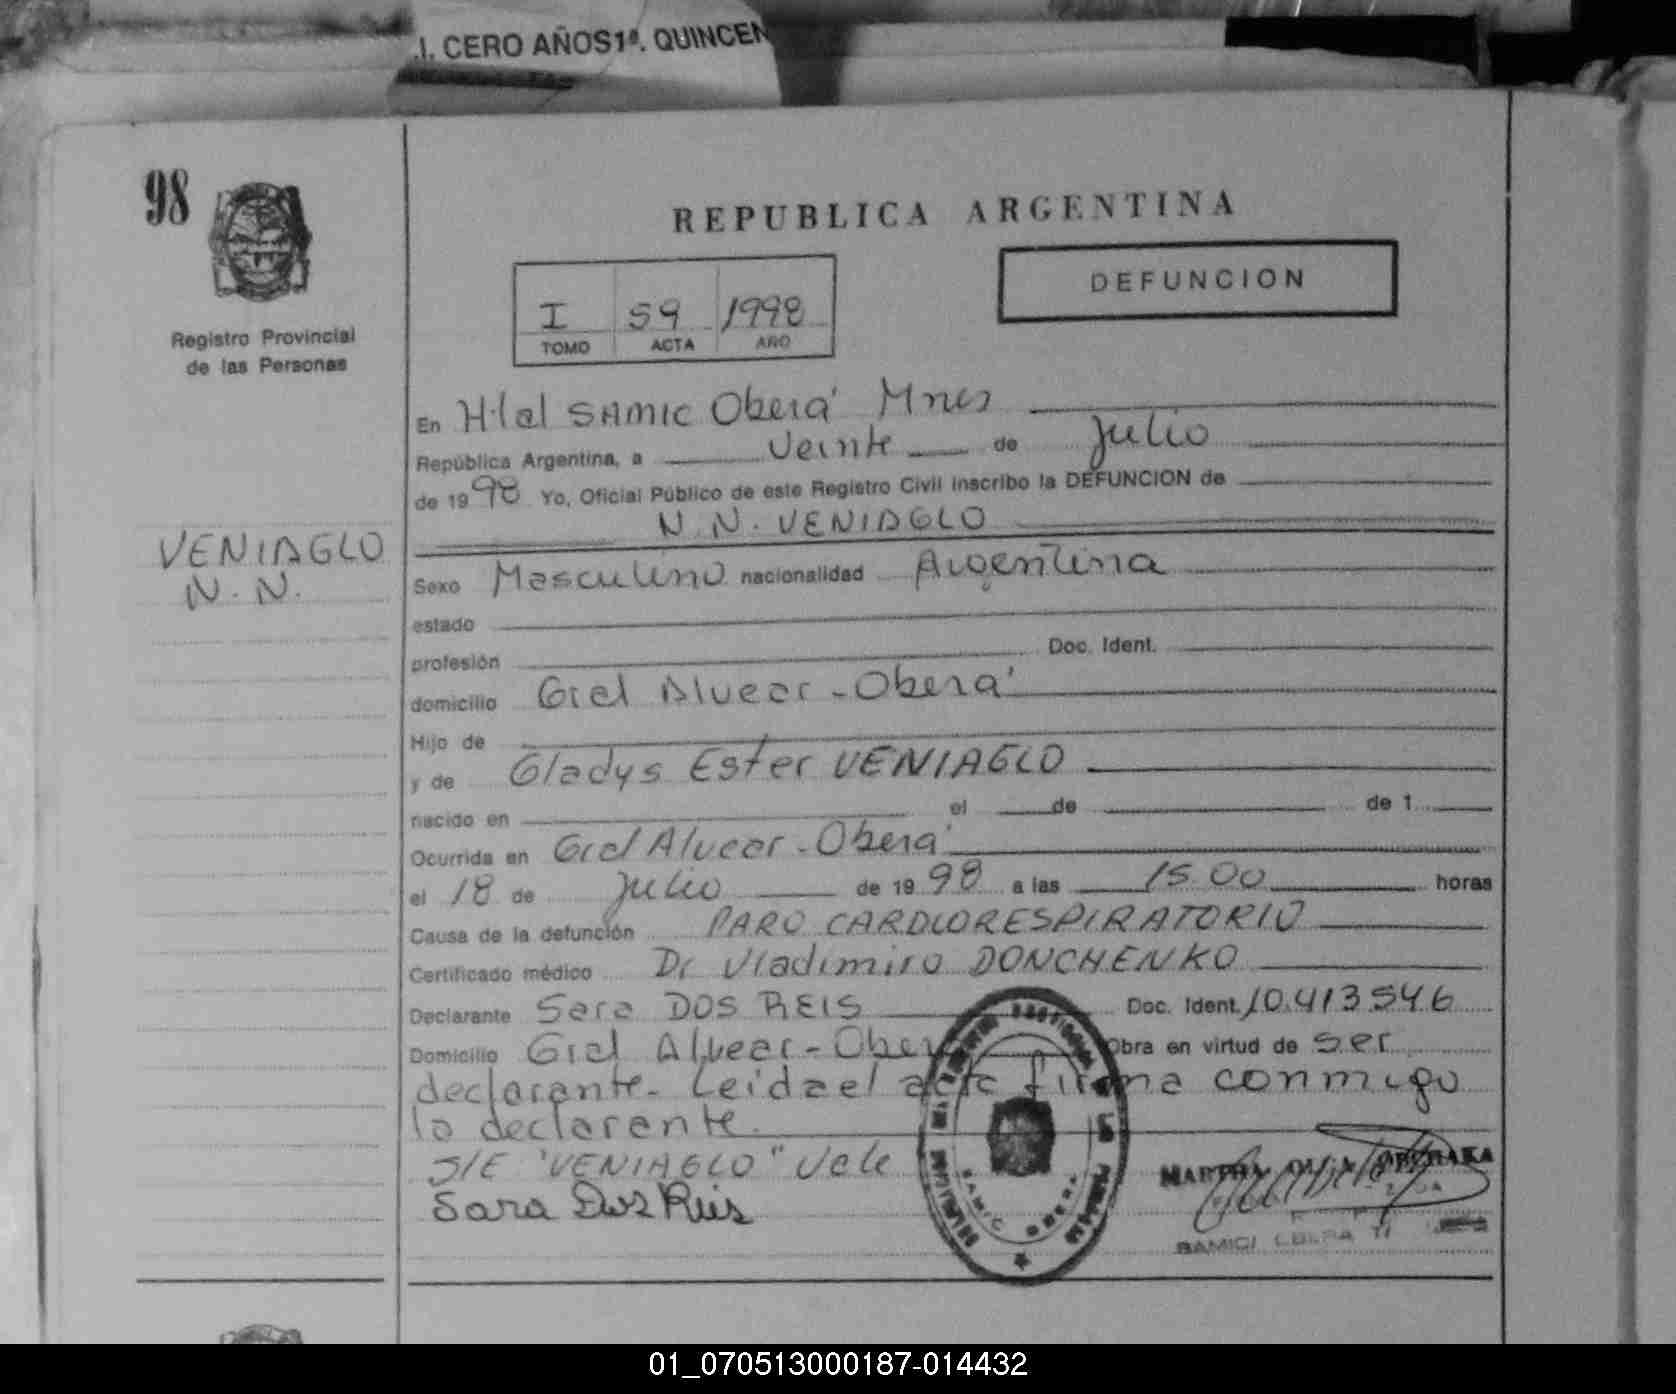 .I. CERO AÑOS 1ª. QUINCEN
98
REPUBLICA ARGENTINA
DEFUNCION
I 59 1998
TOMO ACTA AÑO
Registro Provincial
de las Personas
En H·tal SAMIC Oberá Mnes
República Argentina, a veinte de Julio
de 1998 Yo, Oficial Público de este Registro Civil inscribo la DEFUNCION de
N.N. VENIAGLO
VENIAGLO
N. N.
Sexo Masculino nacionalidad Argentina
estado
profesión Doc. Ident.
domicilio Gral Alvear - Oberá
Hijo de
y de Gladys Ester VENIAGLO
nacido en el de de 1
Ocurrida en Gral Alvear - Oberá
el 18 de Julio de 1998 a las 15.00 horas
Causa de la defunción PARO CARDIORESPIRATORIO
Certificado médico Dr Vladimiro DONCHENKO
Declarante Sara DOS REIS Doc. Ident. 10.413546
Domicilio Gral Alvear - Oberá Obra en virtud de ser
declarante. Leida el acta firma conmigo
la declarante.
S/E "VENIAGLO" Vale
Sara Dos Reis
MARTHA
SAMIC OBERA
01_070513000187-014432